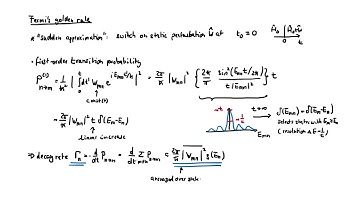 Fermi's golden rule
"sudden approximation": switch on static perturbation Ŵ at t₀ = 0 Ĥ₀ | Ĥ₀+Ŵ
0 t
• first-order transition probability
P⁽¹⁾ₙ→ₘ = 1/ħ² | ∫ dt' Wₘₙ e^{i Eₘₙ t'/ħ} |² = 2π/ħ |Wₘₙ|² { 2ħ/π sin²(Eₘₙ t/2ħ) / t |Eₘₙ|² } t
(const)
= 2π/ħ |Wₘₙ|² t δ(Eₘ-Eₙ)
linear increase
t→∞ δ(Eₘₙ) = δ(Eₘ-Eₙ)
selects states with Eₘ=Eₙ
Eₘₙ (resolution ΔE~1/t)
⇒ decay rate Γₙ = - d/dt Pₙ→ₙ = d/dt Σ Pₙ→ₘ = 2π/ħ |Wₘₙ|² ρ(Eₙ)
m≠n
averaged over states